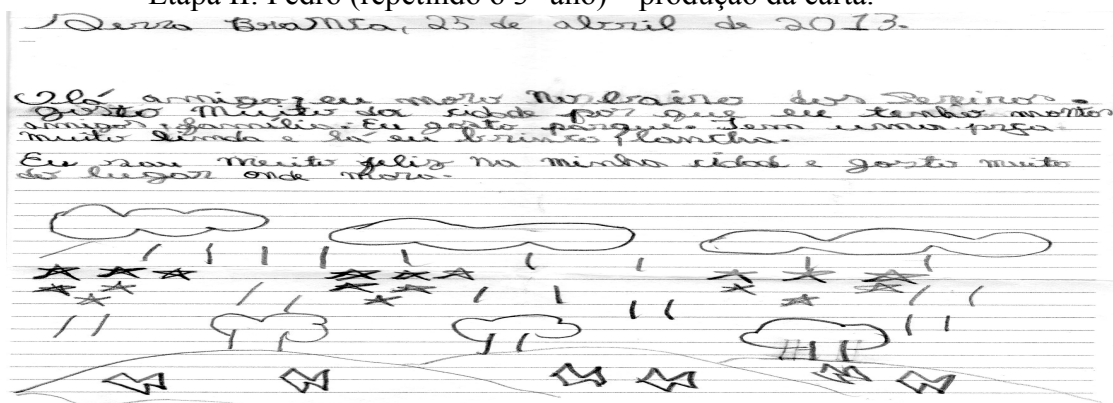 Etapa II: Pedro (repetindo o 5º ano) – produção da carta.
Serra Branca, 25 de abril de 2013.
Olá amigo, eu moro no bairro dos Pereiros.
gosto muito da cidade por que eu tenho montos
amigos e família. Eu gosto porque tem uma praça
muito linda e lá eu brinco
Eu sou muito feliz na minha cidade e gosto muito
do lugar onde moro.